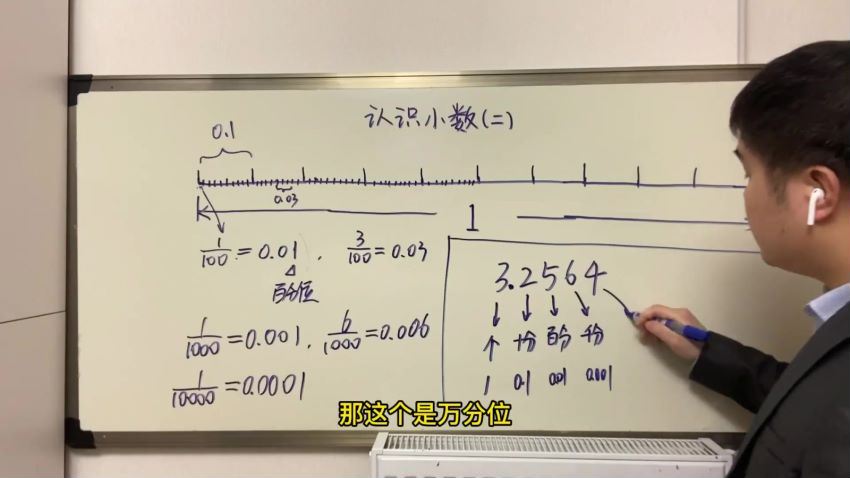 认识小数(二)
0.1
0.03
1
1/100 = 0.01 , 3/100 = 0.03
百分位
1/1000 = 0.001, 6/1000 = 0.006
1/10000 = 0.0001
3.2564
个 十分 百分 千分
1 0.1 0.01 0.001
那这个是万分位